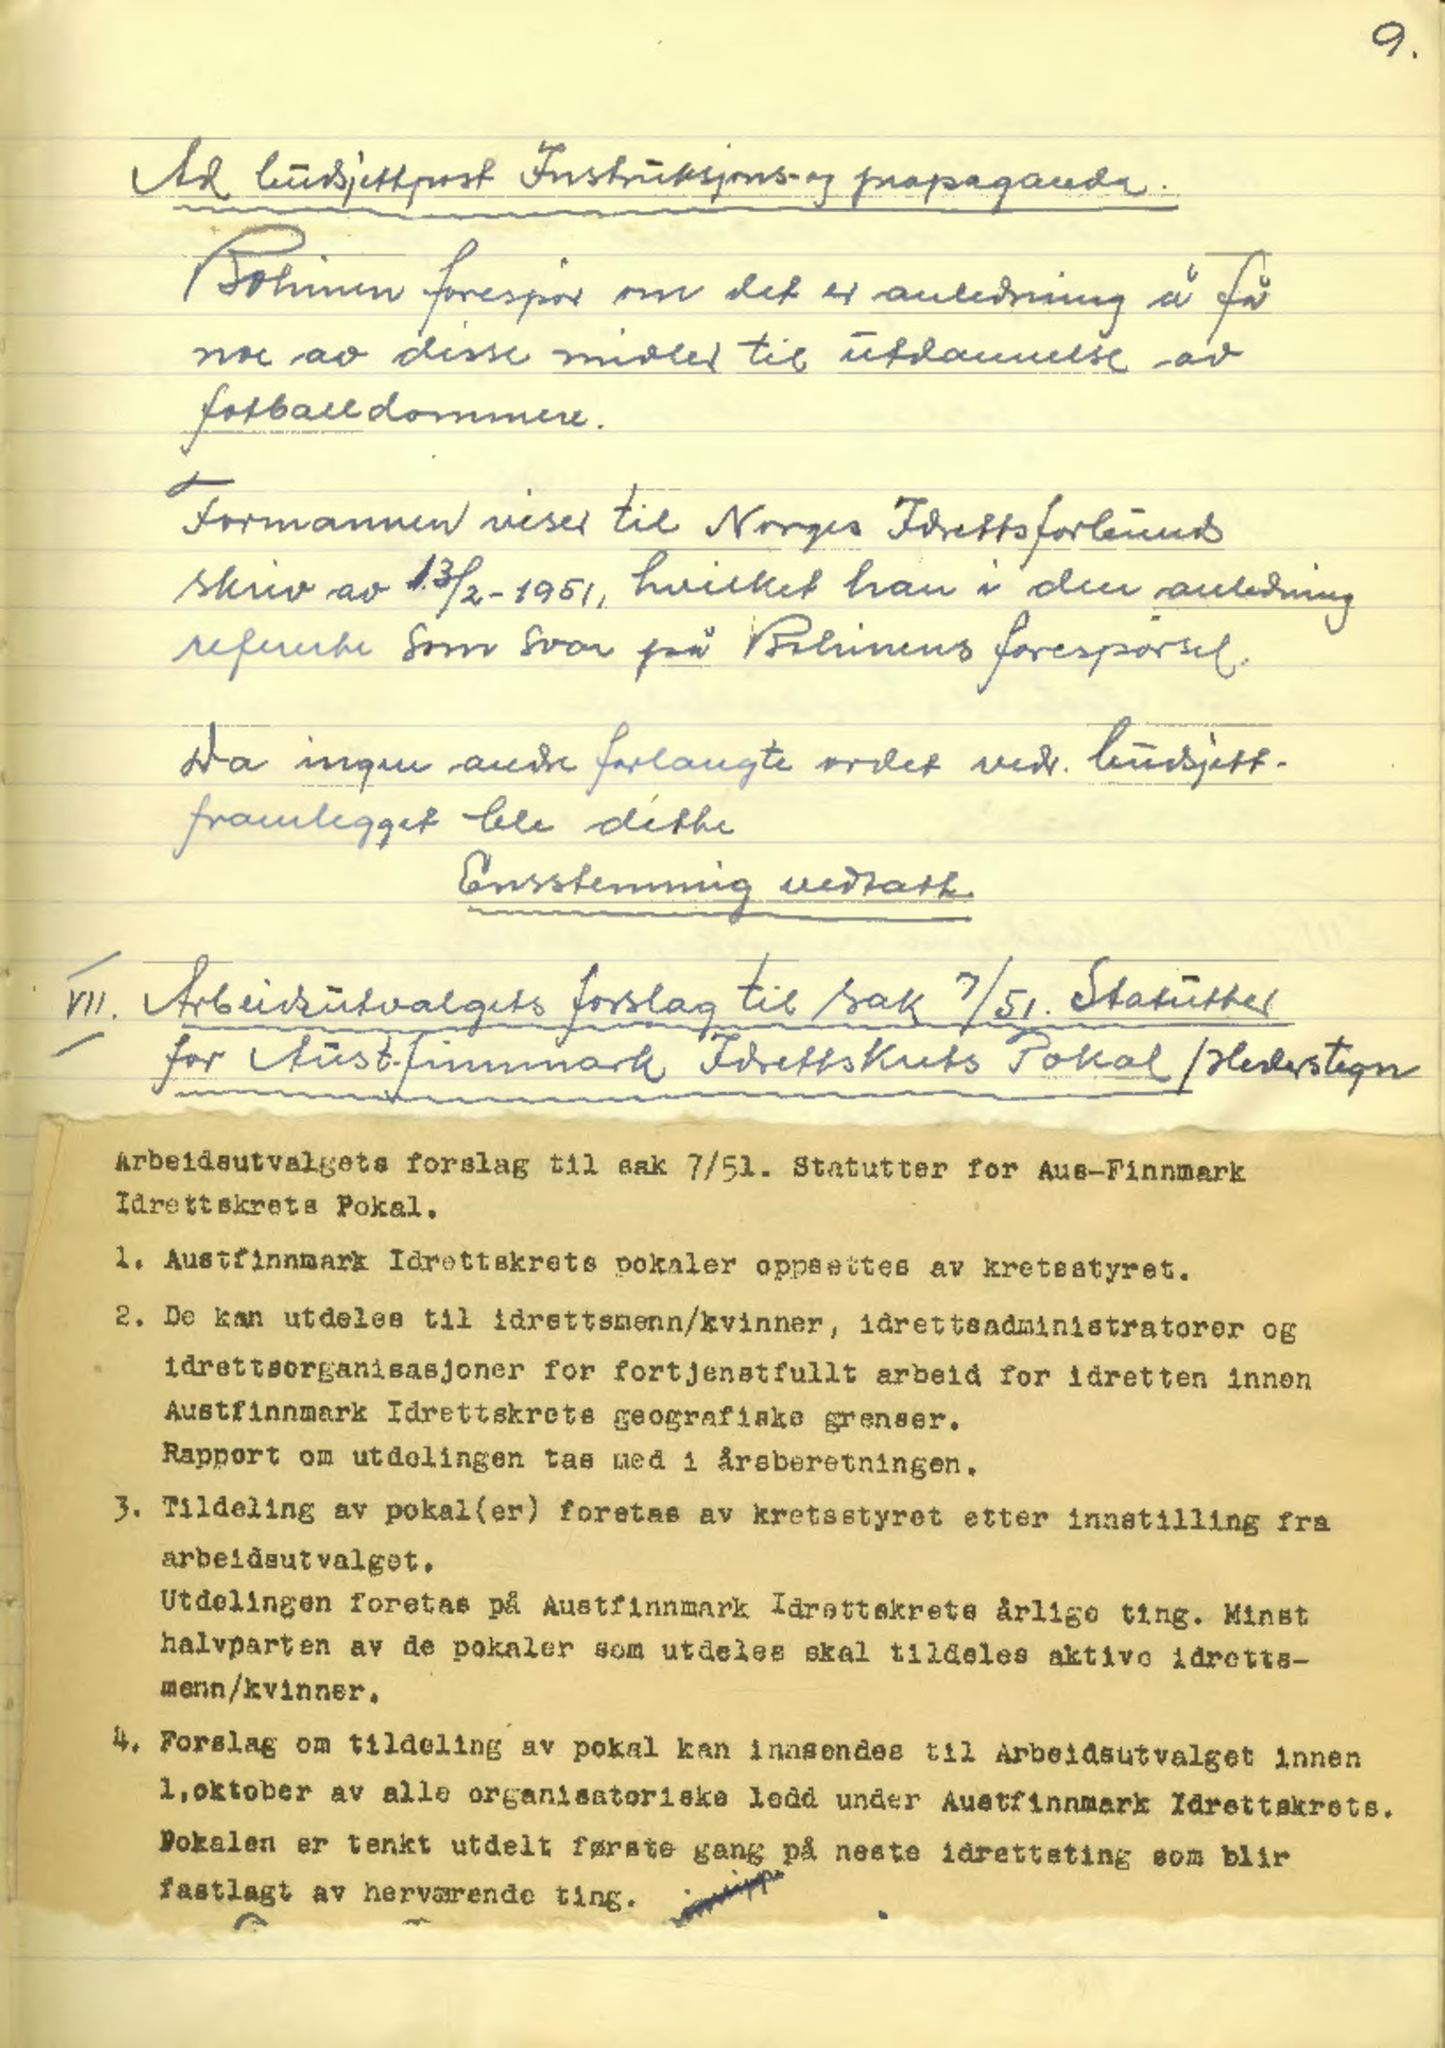 9.
Ad budsjettpost Instruksjons- og propaganda.
Bohinen forespør om det er anledning å få
noe av disse midler til utdannelse av
fotballdommere.
Formannen viser til Norges Idrettsforbunds
skriv av 13/2-1951, hvilket han i den anledning
refererte som svar på Bohinens forespørsel.
Da ingen andre forlangte ordet vedr. budsjett-
framlegget ble dette
Ensstemmig vedtatt.
VII. Arbeidsutvalgets forslag til sak 7/51. Statutter
for Aust-finnmark Idrettskrets Pokal /Hederstegn
Arbeidsutvalgets forslag til sak 7/51. Statutter for Aus-Finnmark
Idrettskrets Pokal.
1. Austfinnmark Idrettskrets pokaler oppsettes av kretsstyret.
2. De kan utdeles til idrettsmenn/kvinner, idrettsadministratorer og
idrettsorganisasjoner for fortjenstfullt arbeid for idretten innen
Austfinnmark Idrettskrets geografiske grenser.
Rapport om utdelingen tas med i årsberetningen.
3. Tildeling av pokal(er) foretas av kretsstyret etter innstilling fra
arbeidsutvalget.
Utdelingen foretas på Austfinnmark Idrettskrets årlige ting. Minst
halvparten av de pokaler som utdeles skal tildeles aktive idretts-
menn/kvinner.
4. Forslag om tildeling av pokal kan innsendes til Arbeidsutvalget innen
1.oktober av alle organisatoriske ledd under Austfinnmark Idrettskrets.
Pokalen er tenkt utdelt første gang på neste idrettsting som blir
fastlagt av herværende ting.